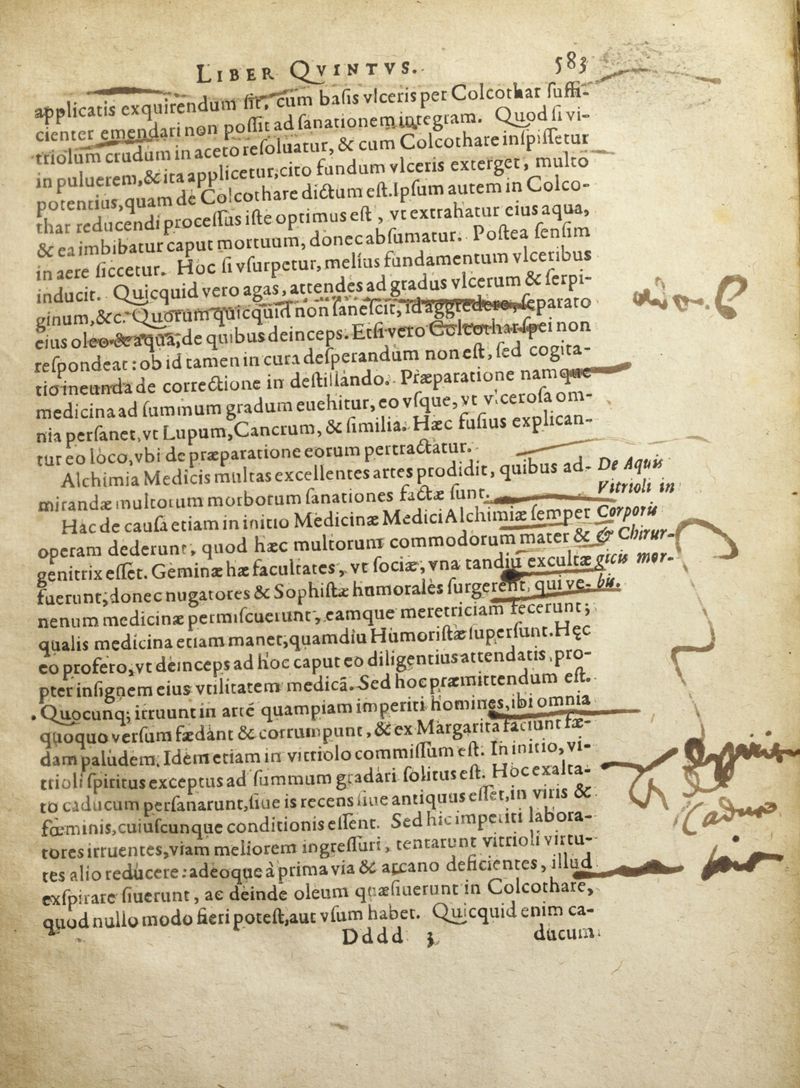 LIBER QVINTVS. 583
applicatis exquirendum sit, cùm basis vlceris per Colcothar suffi-
cienter emendari non possit ad sanationem integram. Quod si vi-
triolum crudum in aceto resoluatur, & cum Colcothare inspissetur
in puluerem, & ita applicetur, cito fundum vlceris exterget, multo
potentius, quam de Colcothare dictum est. Ipsum autem in Colco-
thar reducendi processus iste optimus est, vt extrahatur eius aqua,
& ea imbibatur caput mortuum, donec absumatur. Postea sensim
in aere siccetur. Hoc si vsurpetur, melius fundamentum vlceribus
inducit. Quicquid vero agas, attendes ad gradus vlcerum & serpi-
ginum, &c. Quorum quicquid non sanescit, id aggredere, separato
eius oleo & aqua, de quibus deinceps. Etsi vero Colcothar spei non
respondeat: ob id tamen in cura desperandum non est, sed cogita-
tio ineunda de correctione in destillando. Præparatione namque
medicina ad summum gradum euehitur, eo vsque, vt vlcerosa om-
nia persanet, vt Lupum, Cancrum, & similia. Hæc fusius explican-
tur eo loco, vbi de præparatione eorum pertractatur.
Alchimia Medicis multas excellentes artes prodidit, quibus ad-
mirandæ multorum morborum sanationes factæ sunt.
De Aquis
Vitrioli in
Corporis
& Chirur-
gicis mor-
bis.
Hac de causa etiam in initio Medicinæ Medici Alchimiæ semper
operam dederunt, quod hæc multorum commodorum mater &
genitrix esset. Geminæ hæ facultates, vt sociæ, vna tandiu excultæ
fuerunt, donec nugatores & Sophistæ humorales surgerent, qui ve-
nenum medicinæ permiscuerunt, eamque meretriciam fecerunt;
qualis medicina etiam manet, quamdiu Humoristæ supersunt. Hęc
eo profero, vt deinceps ad hoc caput eo diligentius attendatis, pro-
pter insignem eius vtilitatem medicā. Sed hoc præmittendum est.
Quocunq; irruunt in artē quampiam imperiti homines, ibi omnia
quoquo versum fœdant & corrumpunt, & ex Margarita faciunt fæ-
dam paludem. Idem etiam in vitriolo commissum est. In initio, vi-
trioli spiritus exceptus ad summum gradari solitus est. Hoc exalta-
to caducum persanarunt, siue is recens siue antiquus esset, in viris &
fœminis, cuiuscunque conditionis essent. Sed hic imperiti labora-
tores irruentes, viam meliorem ingressuri, tentarunt vitrioli virtu-
tes alio reducere: adeoque à prima via & arcano deficientes, illud
exspirare siuerunt, ac deinde oleum quæsiuerunt in Colcothare,
quod nullo modo fieri potest, aut vsum habet. Quicquid enim ca-
Dddd 3 ducum